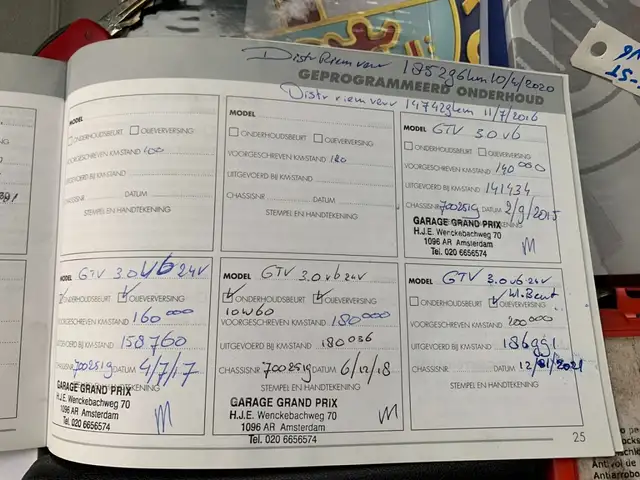 Distr Riem verv 185296km 10/4/2020
GEPROGRAMMEERD ONDERHOUD
Distr riem verv 147429km 11/7/2016
MODEL
ONDERHOUDSBEURT OLIEVERVERSING
VOORGESCHREVEN KM-STAND 100
UITGEVOERD BIJ KM-STAND
CHASSISNR. DATUM
STEMPEL EN HANDTEKENING
MODEL
ONDERHOUDSBEURT OLIEVERVERSING
VOORGESCHREVEN KM-STAND 120
UITGEVOERD BIJ KM-STAND
CHASSISNR. DATUM
STEMPEL EN HANDTEKENING
MODEL GTV 3.0 V6
ONDERHOUDSBEURT OLIEVERVERSING
VOORGESCHREVEN KM-STAND 140000
UITGEVOERD BIJ KM-STAND 141434
CHASSISNR. 7002519 DATUM 2/9/2015
GARAGE GRAND PRIX
H.J.E. Wenckebachweg 70
1096 AR Amsterdam
Tel. 020 6656574
GTV 3.0 V6 24V
ONDERHOUDSBEURT OLIEVERVERSING
VOORGESCHREVEN KM-STAND 160000
UITGEVOERD BIJ KM-STAND 158760
CHASSISNR. 7002519 DATUM 4/7/17
STEMPEL EN HANDTEKENING
GARAGE GRAND PRIX
H.J.E. Wenckebachweg 70
1096 AR Amsterdam
Tel. 020 6656574
MODEL GTV 3.0 V6 24V
ONDERHOUDSBEURT OLIEVERVERSING
10W60
VOORGESCHREVEN KM-STAND 180000
UITGEVOERD BIJ KM-STAND 180036
CHASSISNR. 7002519 DATUM 6/12/18
STEMPEL EN HANDTEKENING
GARAGE GRAND PRIX
H.J.E. Wenckebachweg 70
1096 AR Amsterdam
Tel. 020 6656574
MODEL GTV 3.0 V6 24V
ONDERHOUDSBEURT OLIEVERVERSING
VOORGESCHREVEN KM-STAND 200000
UITGEVOERD BIJ KM-STAND 186991
CHASSISNR. DATUM 12/01/2021
STEMPEL EN HANDTEKENING
25